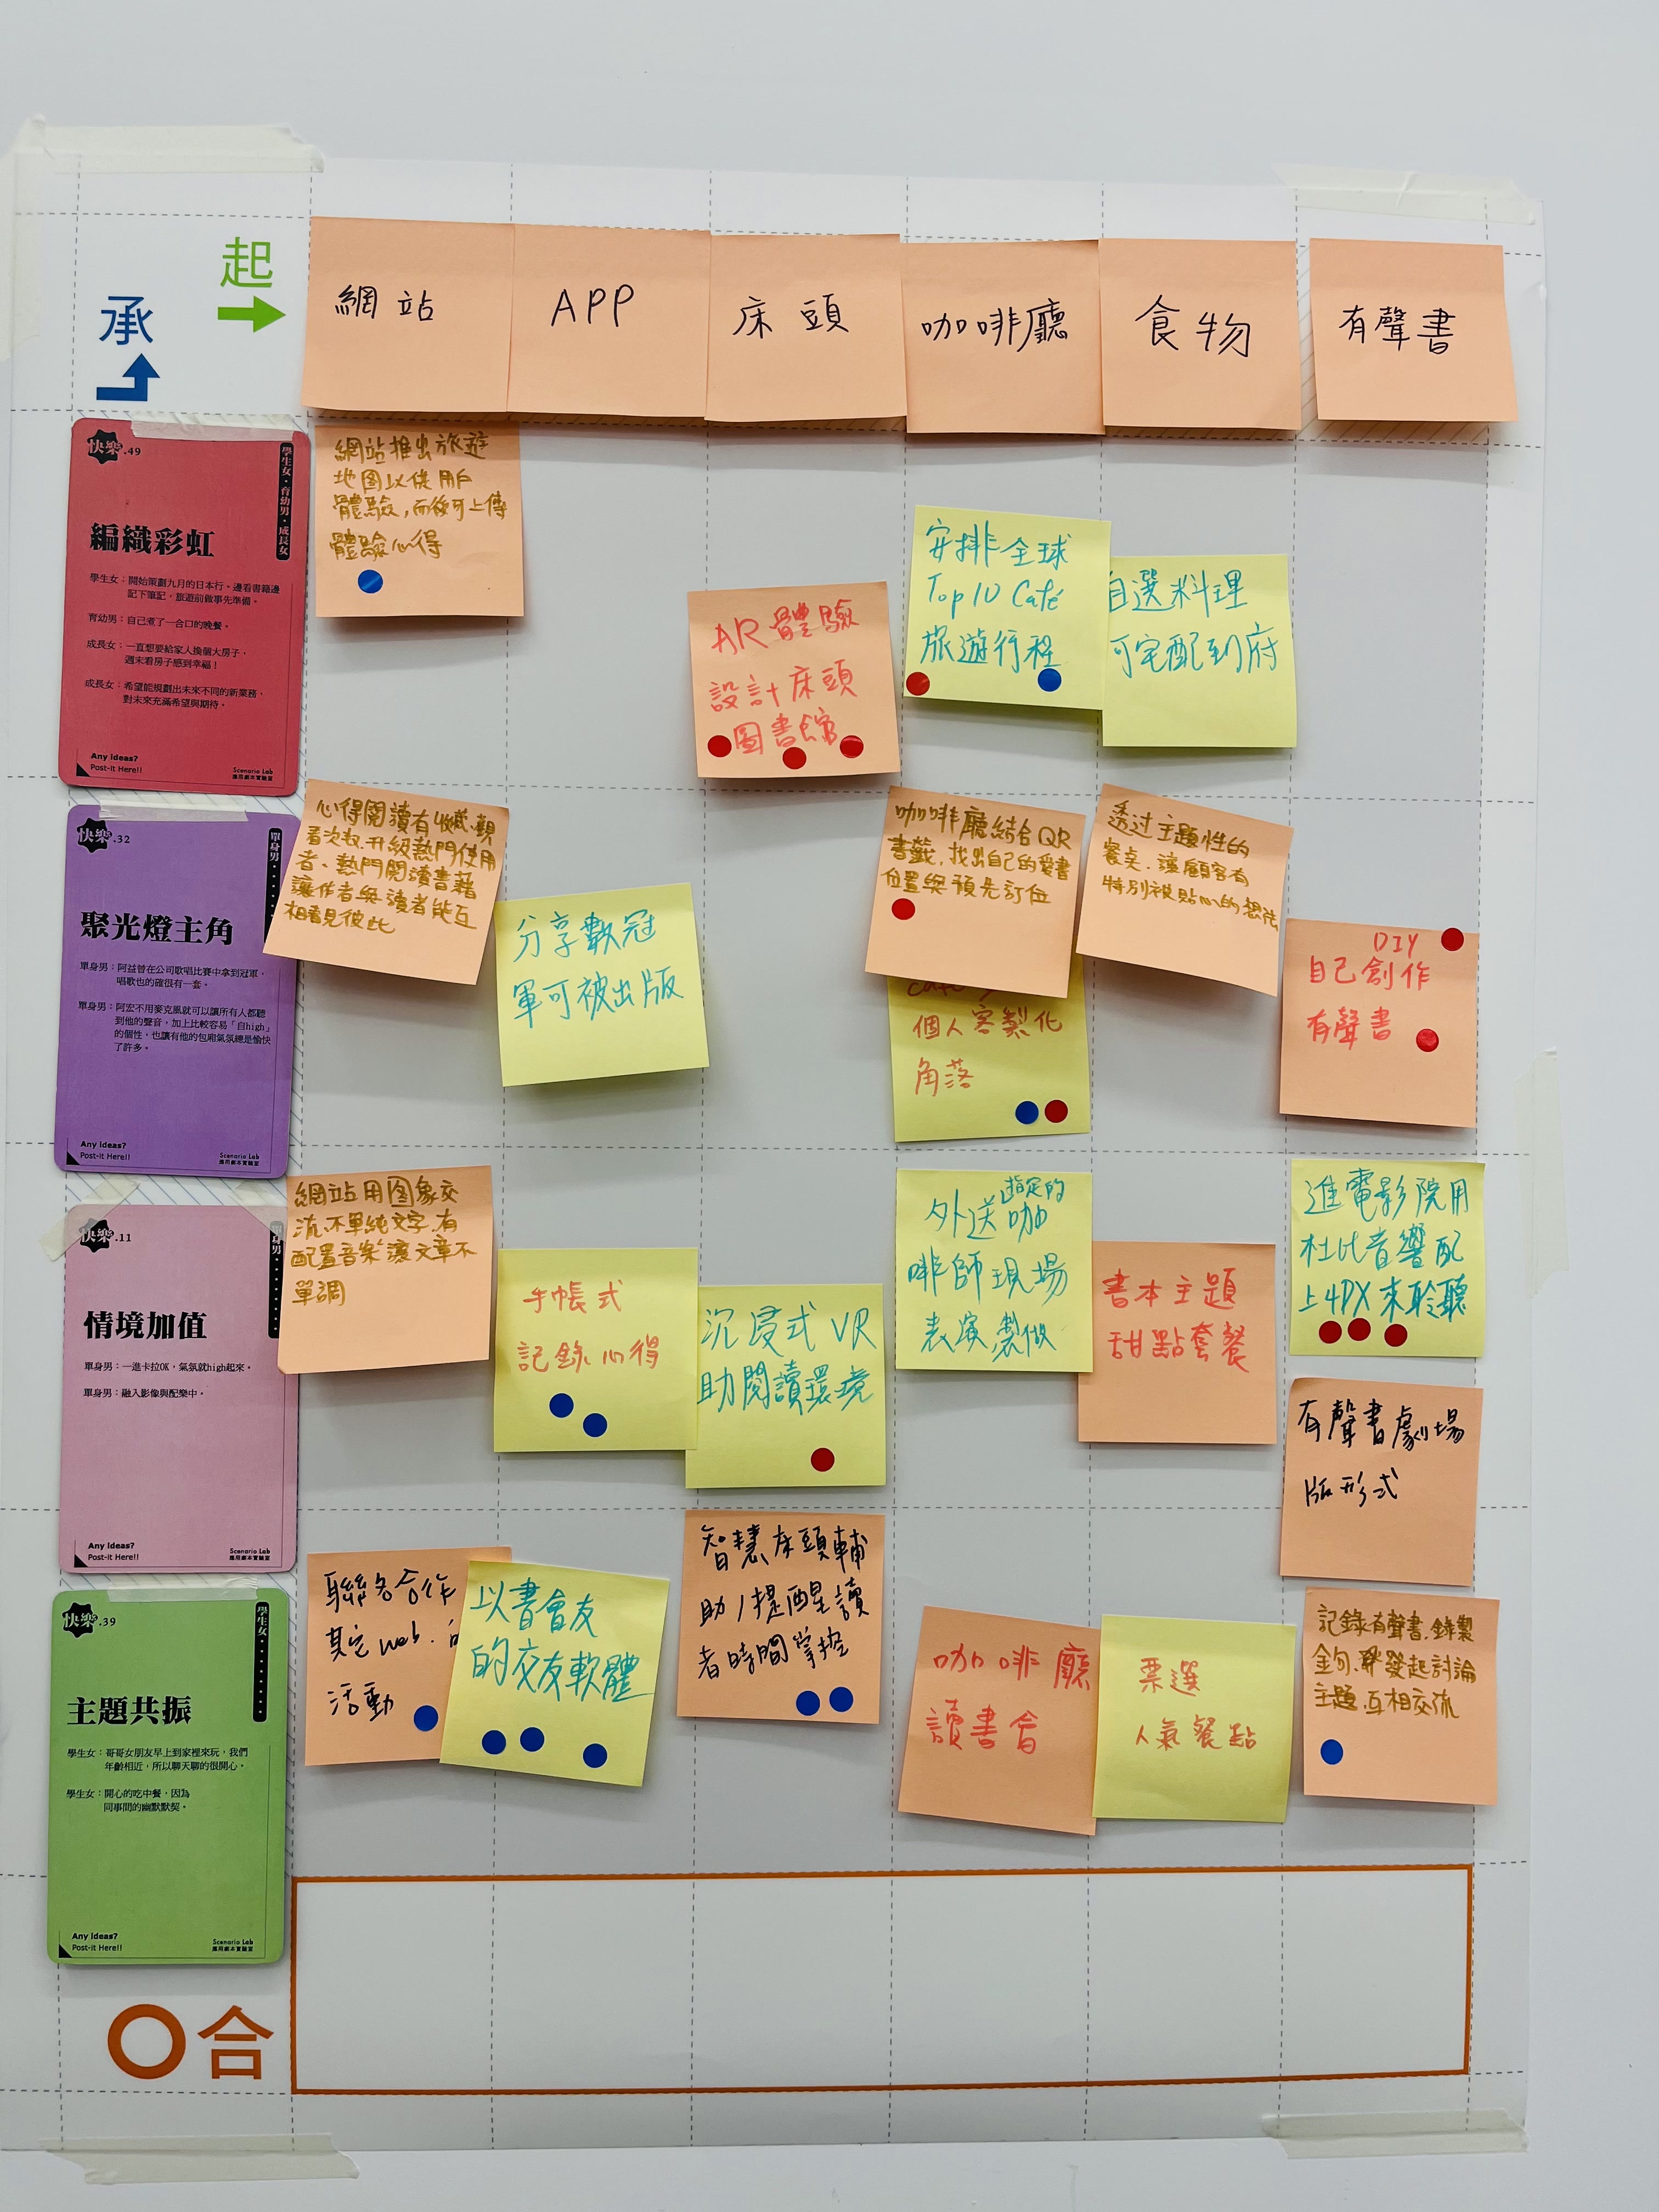 起
承
網站
APP
床頭
咖啡廳
食物
有聲書
快樂.49
學生女・育幼男・成長女
編織彩虹
學生女：開始策劃九月的日本行。邊看書籍邊
記下筆記，旅遊前做事先準備。
育幼男：自己煮了一合口的晚餐。
成長女：一直想要給家人換個大房子，
週末看房子感到幸福！
成長女：希望能規劃出未來不同的新業務，
對未來充滿希望與期待。
Any Ideas?
Post-it Here!!
Scenario Lab
應用劇本實驗室
網站推出旅遊
地图以供用戶
體驗，而後可上傳
體驗心得
AR 體驗
設計床頭
圖書館
安排全球
Top 10 Café
旅遊行程
自選料理
可宅配到府
快樂.32
單身男
聚光燈主角
單身男：阿益曾在公司歌唱比賽中拿到冠軍，
唱歌也的確很有一套。
單身男：阿宏不用麥克風就可以讓所有人都聽
到他的聲音，加上比較容易「自high」
的個性，也讓有他的包廂氣氛總是愉快
了許多。
Any Ideas?
Post-it Here!!
Scenario Lab
應用劇本實驗室
心得閱讀有收藏、觀
看次数,升級熱門使用
者、熱門閱讀書籍
讓作者與讀者能互
相看見彼此
分享數冠
軍可被出版
咖啡廳結合QR
書籤，找出自己的愛書
位置與預先訂位
個人客製化
角落
透过主題性的
餐桌，讓顧客有
特別被貼心的想法
DIY
自己創作
有聲書
快樂.11
單身男
情境加值
單身男：一進卡拉OK，氣氛就high起來。
單身男：融入影像與配樂中。
Any Ideas?
Post-it Here!!
Scenario Lab
應用劇本實驗室
網站用图象交
流,不單純文字.有
配置音樂讓文章不
單調
手帳式
記錄心得
沉浸式 VR
助閱讀環境
外送指定的咖
啡師現場
表演製做
書本主題
甜點套餐
進電影院用
杜比音響配
上4DX來聆聽
有聲書劇場
版形式
快樂.39
學生女
主題共振
學生女：哥哥女朋友早上到家裡來玩，我們
年齡相近，所以聊天聊的很開心。
學生女：開心的吃中餐，因為
同事間的幽默默契。
Any Ideas?
Post-it Here!!
Scenario Lab
應用劇本實驗室
聯名合作
其它 web.
活動
以書會友
的交友軟體
智慧床頭輔
助/提醒讀
者時間掌控
咖啡廳
讀書會
票選
人氣餐點
記錄有聲書.錄製
金句、發起討論
主題.互相交流
合